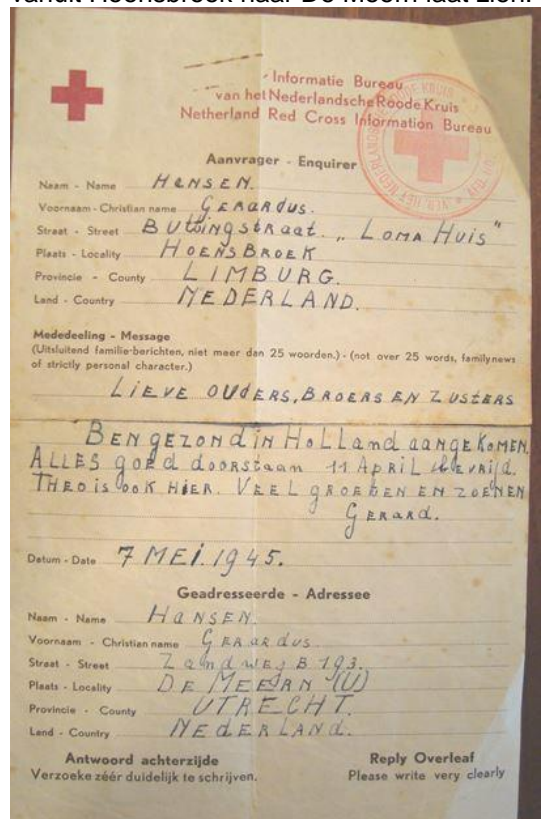 vanuit Hoensbroek naar De Meern laat zien.
Informatie Bureau
van het Nederlandsche Roode Kruis
Netherland Red Cross Information Bureau
Aanvrager - Enquirer
Naam - Name HANSEN.
Voornaam - Christian name GERARDUS.
Straat - Street "LOMA HUIS"
Plaats - Locality HOENSBROEK
Provincie - County LIMBURG.
Land - Country NEDERLAND.
Mededeeling - Message
(Uitsluitend familie-berichten, niet meer dan 25 woorden.) - (not over 25 words, family news
of strictly personal character.)
LIEVE OUDERS, BROERS EN ZUSTERS
BEN GEZOND IN HOLLAND AANGEKOMEN.
ALLES goed doorstaan 11 April bevrijd.
THEO is OOK HIER. VEEL GROETEN EN ZOENEN
GERARD.
Datum - Date 7 MEI. 1945.
Geadresseerde - Adressee
Naam - Name HANSEN.
Voornaam - Christian name GERARDUS.
Straat - Street Zandweg B 193.
Plaats - Locality DE MEERN (U)
Provincie - County UTRECHT.
Land - Country NEDERLAND.
Antwoord achterzijde Reply Overleaf
Verzoeke zéér duidelijk te schrijven. Please write very clearly